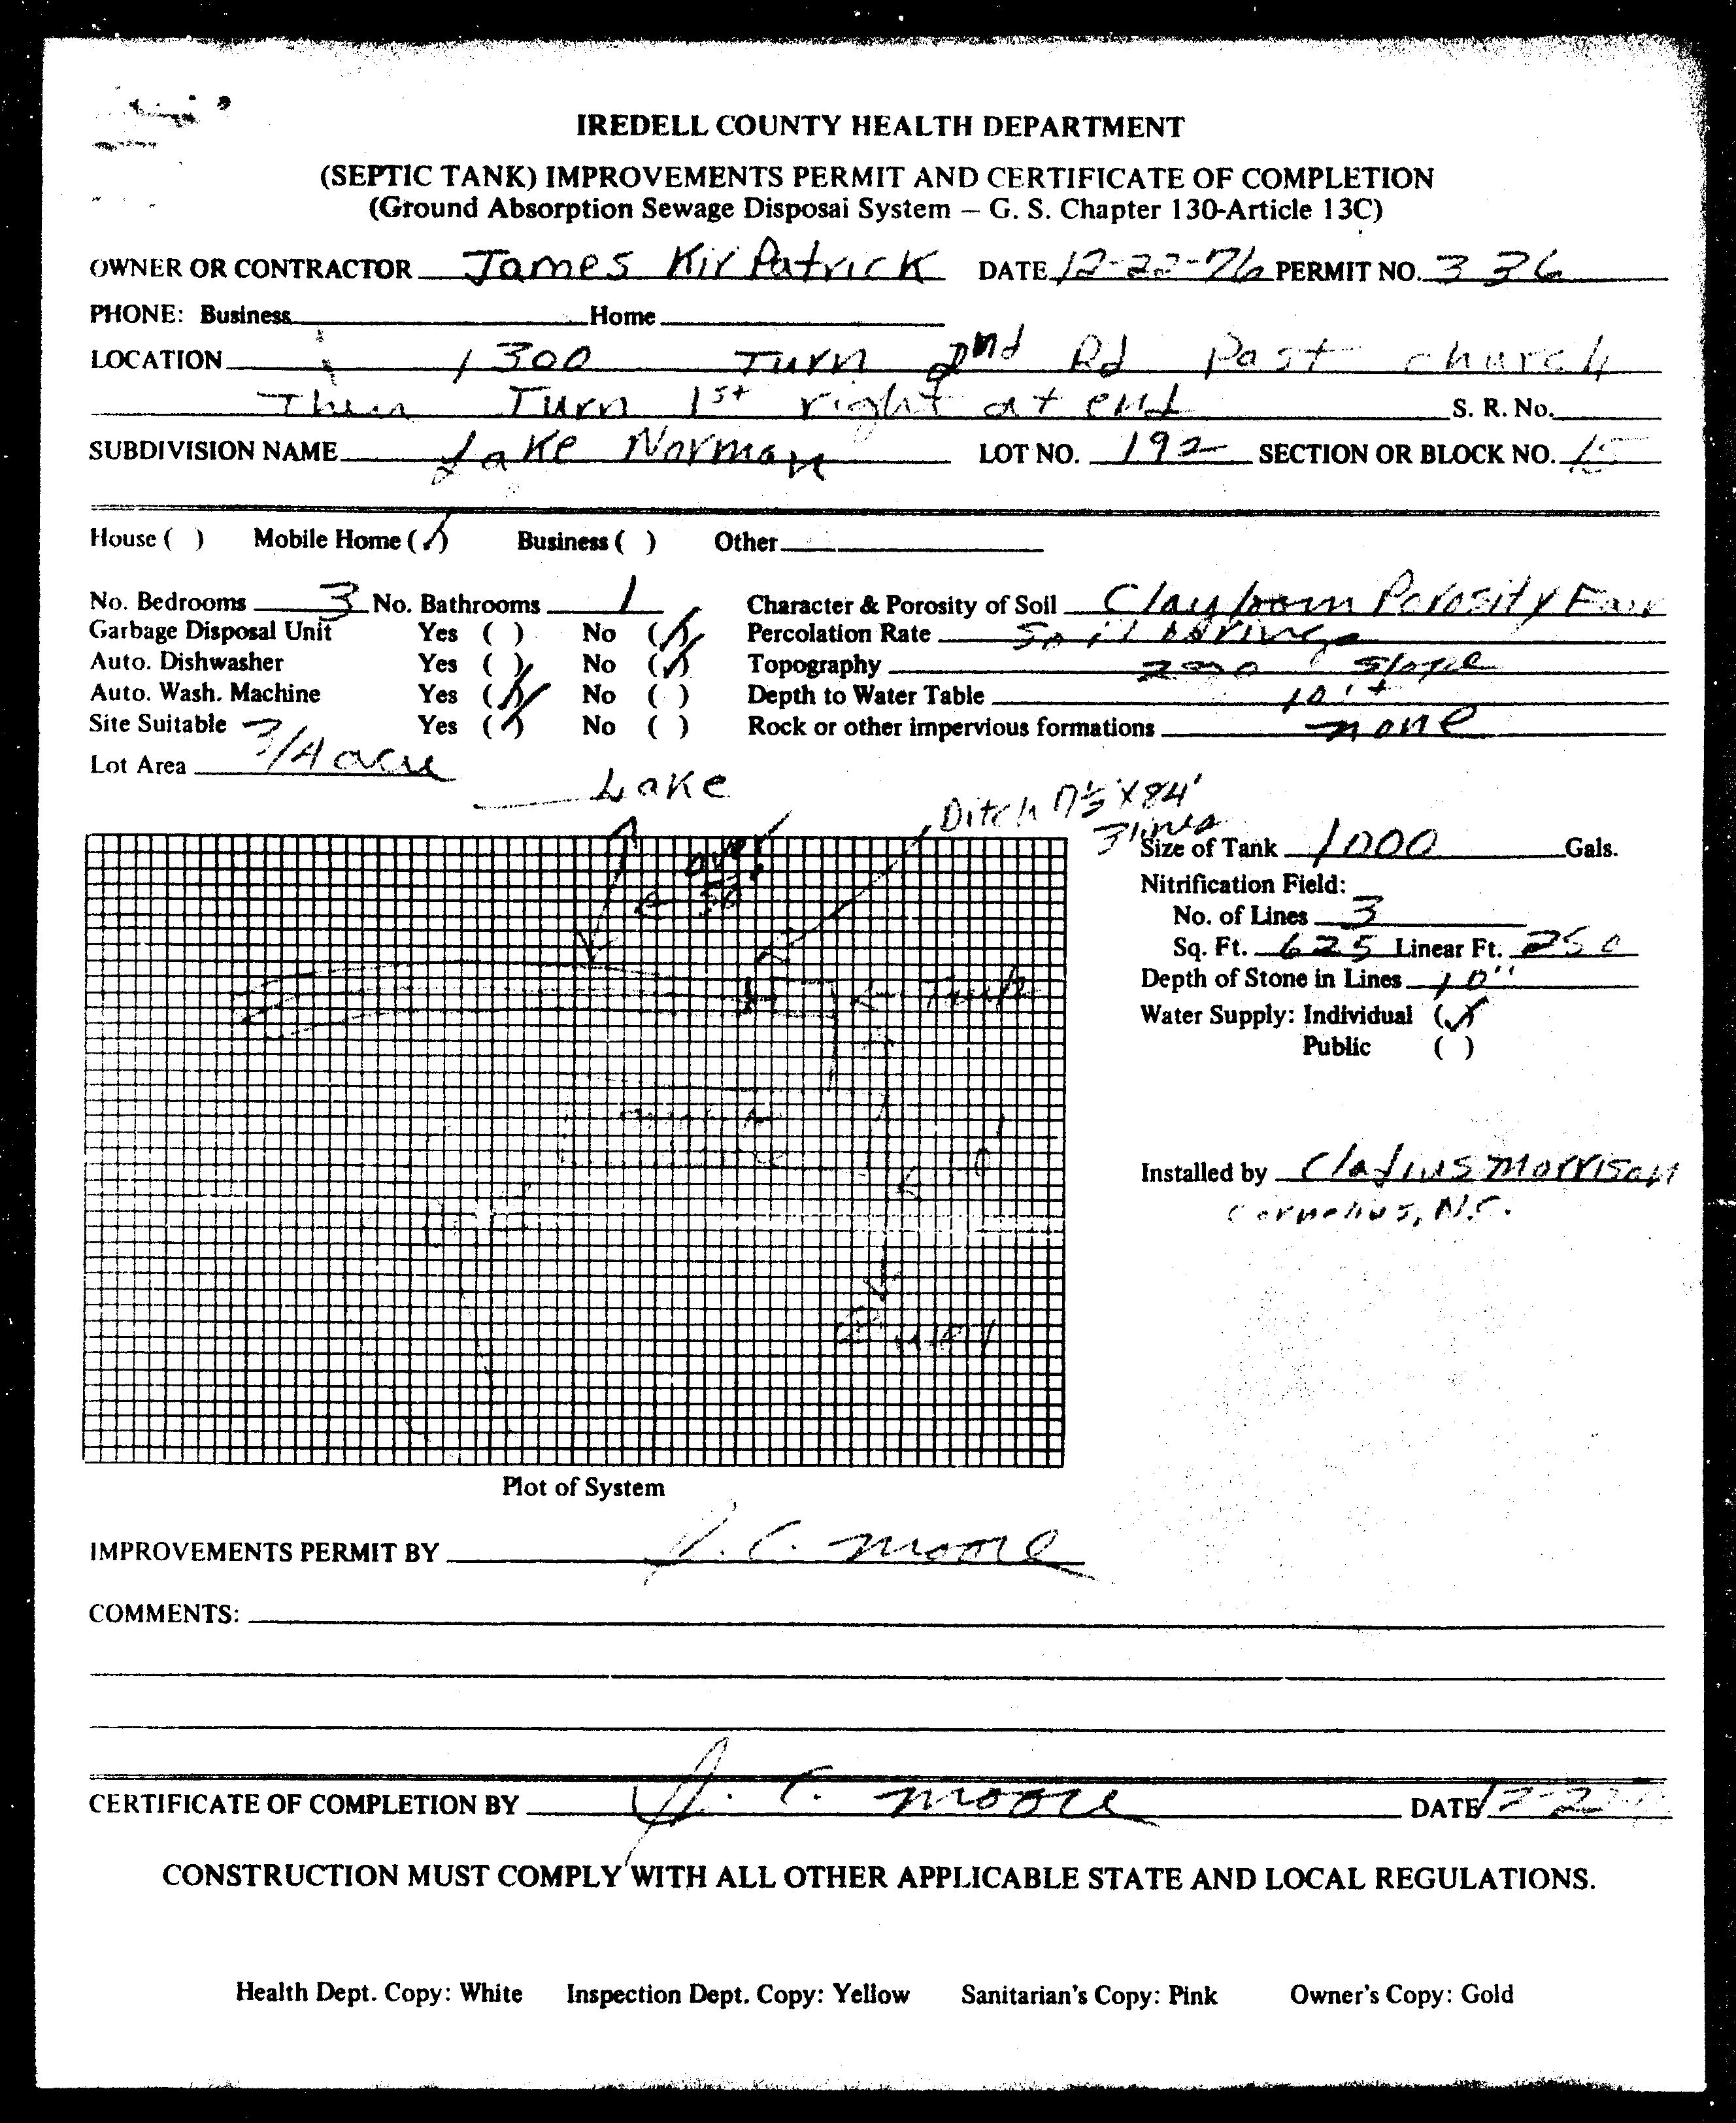 IREDELL COUNTY HEALTH DEPARTMENT
(SEPTIC TANK) IMPROVEMENTS PERMIT AND CERTIFICATE OF COMPLETION
(Ground Absorption Sewage Disposal System – G. S. Chapter 130-Article 13C)
OWNER OR CONTRACTOR James KirPatrick DATE 12-22-76 PERMIT NO. 336
PHONE: Business Home
LOCATION 1300 Turn 2nd Rd Past church
Then Turn 1st right at end S. R. No.
SUBDIVISION NAME Lake Norman LOT NO. 192 SECTION OR BLOCK NO. 15
House ( ) Mobile Home (✓) Business ( ) Other
No. Bedrooms 3 No. Bathrooms 1 Character & Porosity of Soil Clay loam Porosity Fair
Garbage Disposal Unit Yes ( ) No (✓) Percolation Rate Soil borings
Auto. Dishwasher Yes ( ) No (✓) Topography slope
Auto. Wash. Machine Yes (✓) No ( ) Depth to Water Table 10'+
Site Suitable Yes (✓) No ( ) Rock or other impervious formations none
Lot Area 3/4 acre
Lake
Ditch X 84'
3 lines
Size of Tank 1000 Gals.
Nitrification Field:
No. of Lines 3
Sq. Ft. 625 Linear Ft. 250
Depth of Stone in Lines 10"
Water Supply: Individual (✓)
Public ( )
Installed by Morrison
Cornelius, N.C.
Plot of System
IMPROVEMENTS PERMIT BY J. C. Moore
COMMENTS:
CERTIFICATE OF COMPLETION BY J. C. Moore DATE
CONSTRUCTION MUST COMPLY WITH ALL OTHER APPLICABLE STATE AND LOCAL REGULATIONS.
Health Dept. Copy: White Inspection Dept. Copy: Yellow Sanitarian's Copy: Pink Owner's Copy: Gold